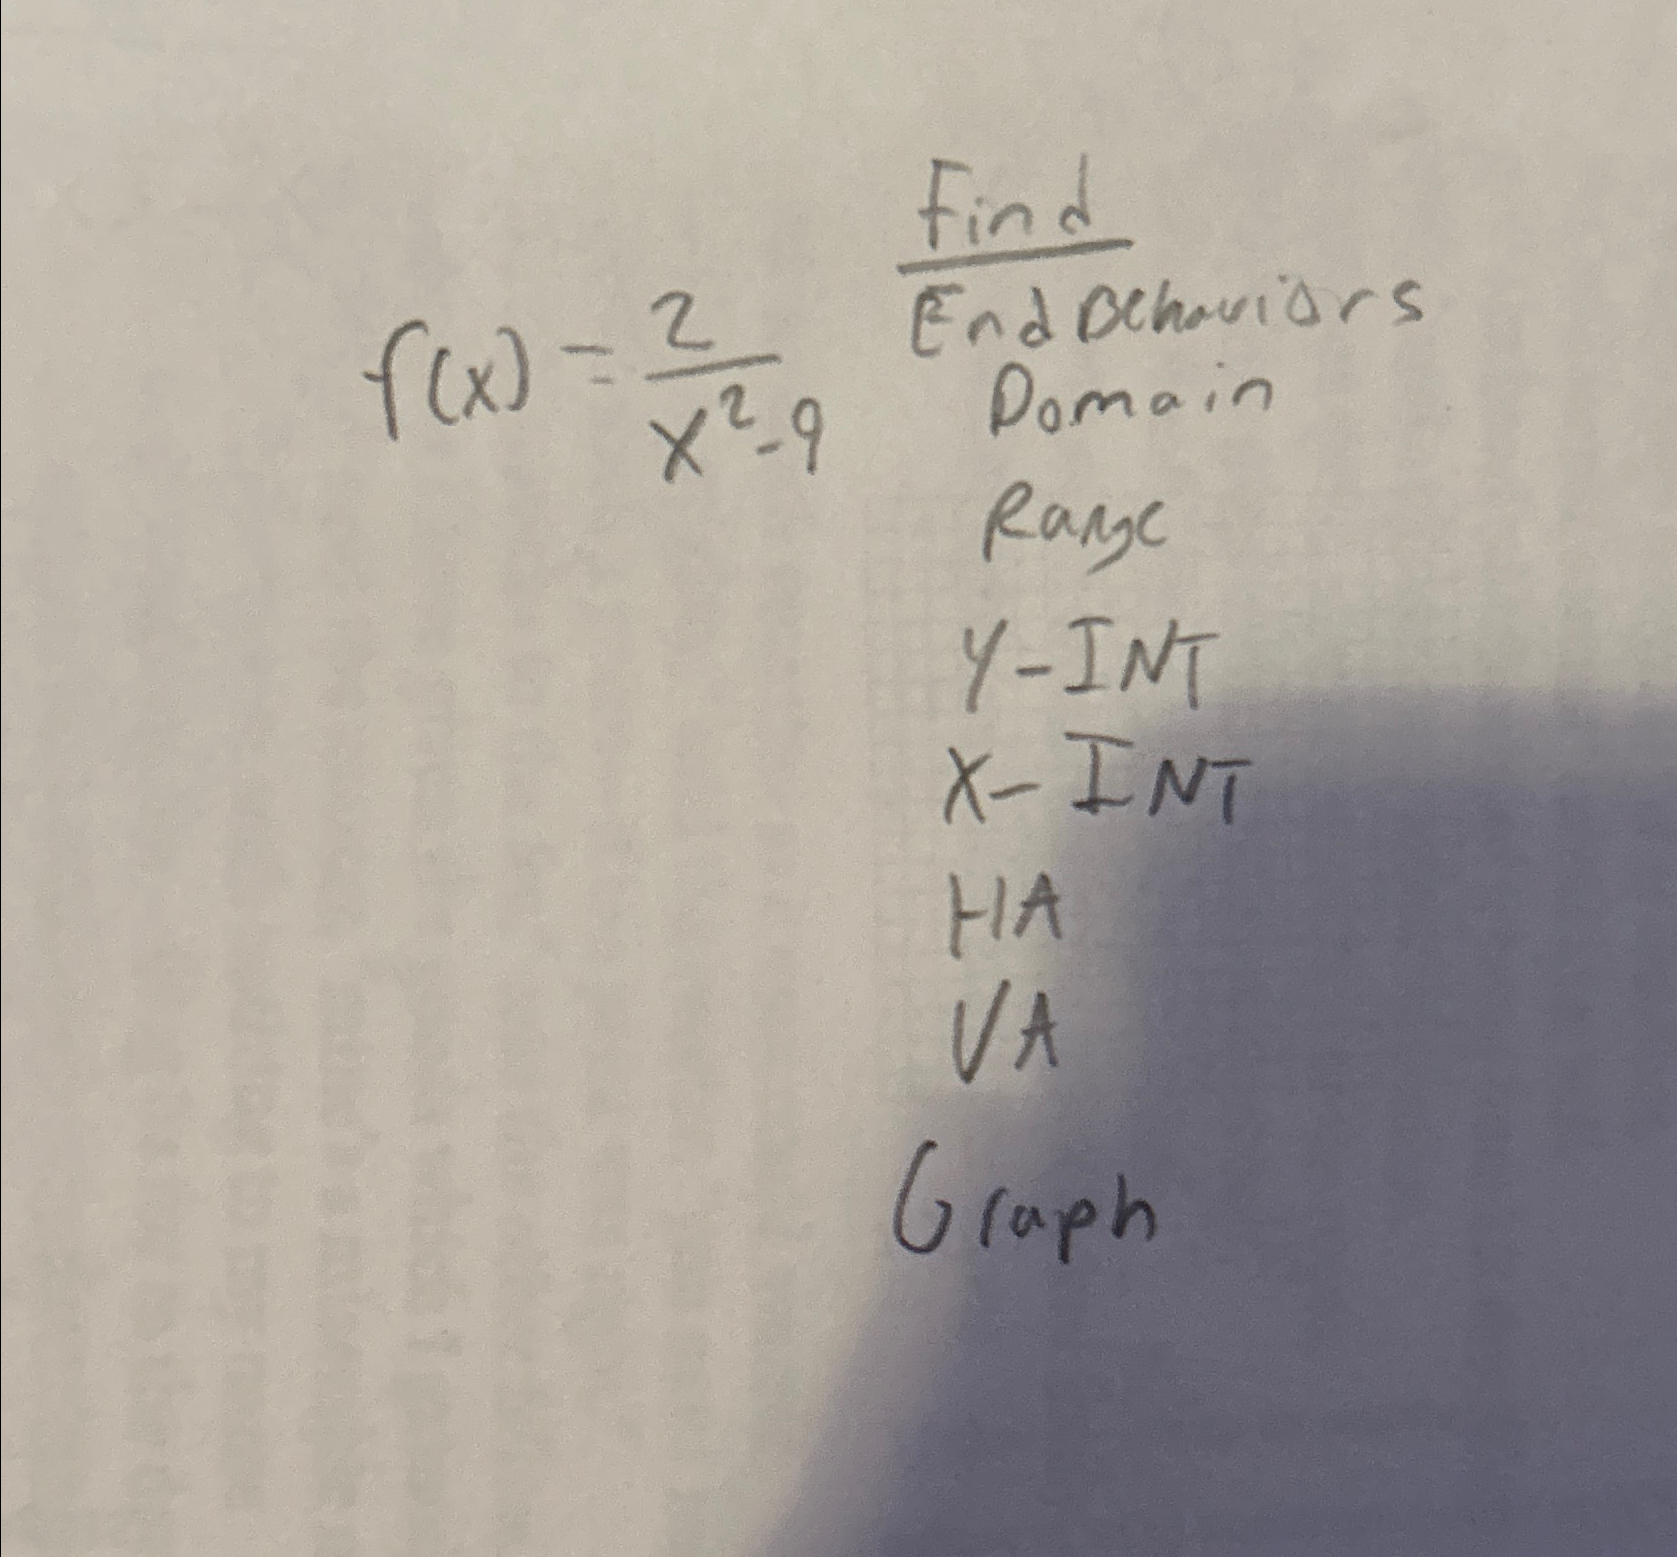 Find
f(x) = 2/(x²-9)
End Behaviors
Domain
Range
Y-INT
X-INT
HA
VA
Graph